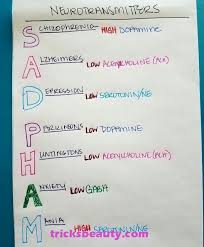 NEUROTRANSMITTERS
SCHIZOPHRENIA HIGH DOPAMINE
ALZHEIMERS LOW ACETYLCHOLINE (ACh)
DEPRESSION LOW SEROTONIN/NE
PARKINSONS LOW DOPAMINE
HUNTINGTONS LOW ACETYLCHOLINE (ACh)
ANXIETY LOW GABA
MANIA HIGH SEROTONIN/NE
tricksbeauty.com